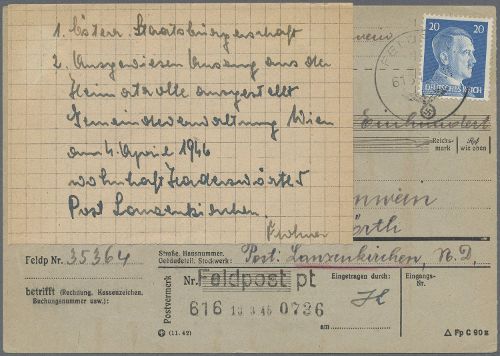 1. Österr. Staatsbürgerschaft
2. Ausgewiesen Auszug aus der
Heimatrolle ausgestellt
Gemeindeverwaltung Wien
am 4. April 1946
wohnhaft Haderswörth 5
Post Lanzenkirchen.
20 20
DEUTSCHES REICH
Einhundert
Reichs-
mark
Rpf
wie oben
wein
örth
Feldp Nr. 35364
Straße, Hausnummer,
Gebäudeteil: Stockwerk:
Post: Lanzenkirchen, N.D.
betrifft (Rechnung, Kassenzeichen,
Buchungsnummer usw.):
Postvermerk
Nr. Feldpost pt
Eingetragen durch:
Eingangs-
Nr.
616 13 3 45 0736
am
(11. 42)
Fp C 90 a